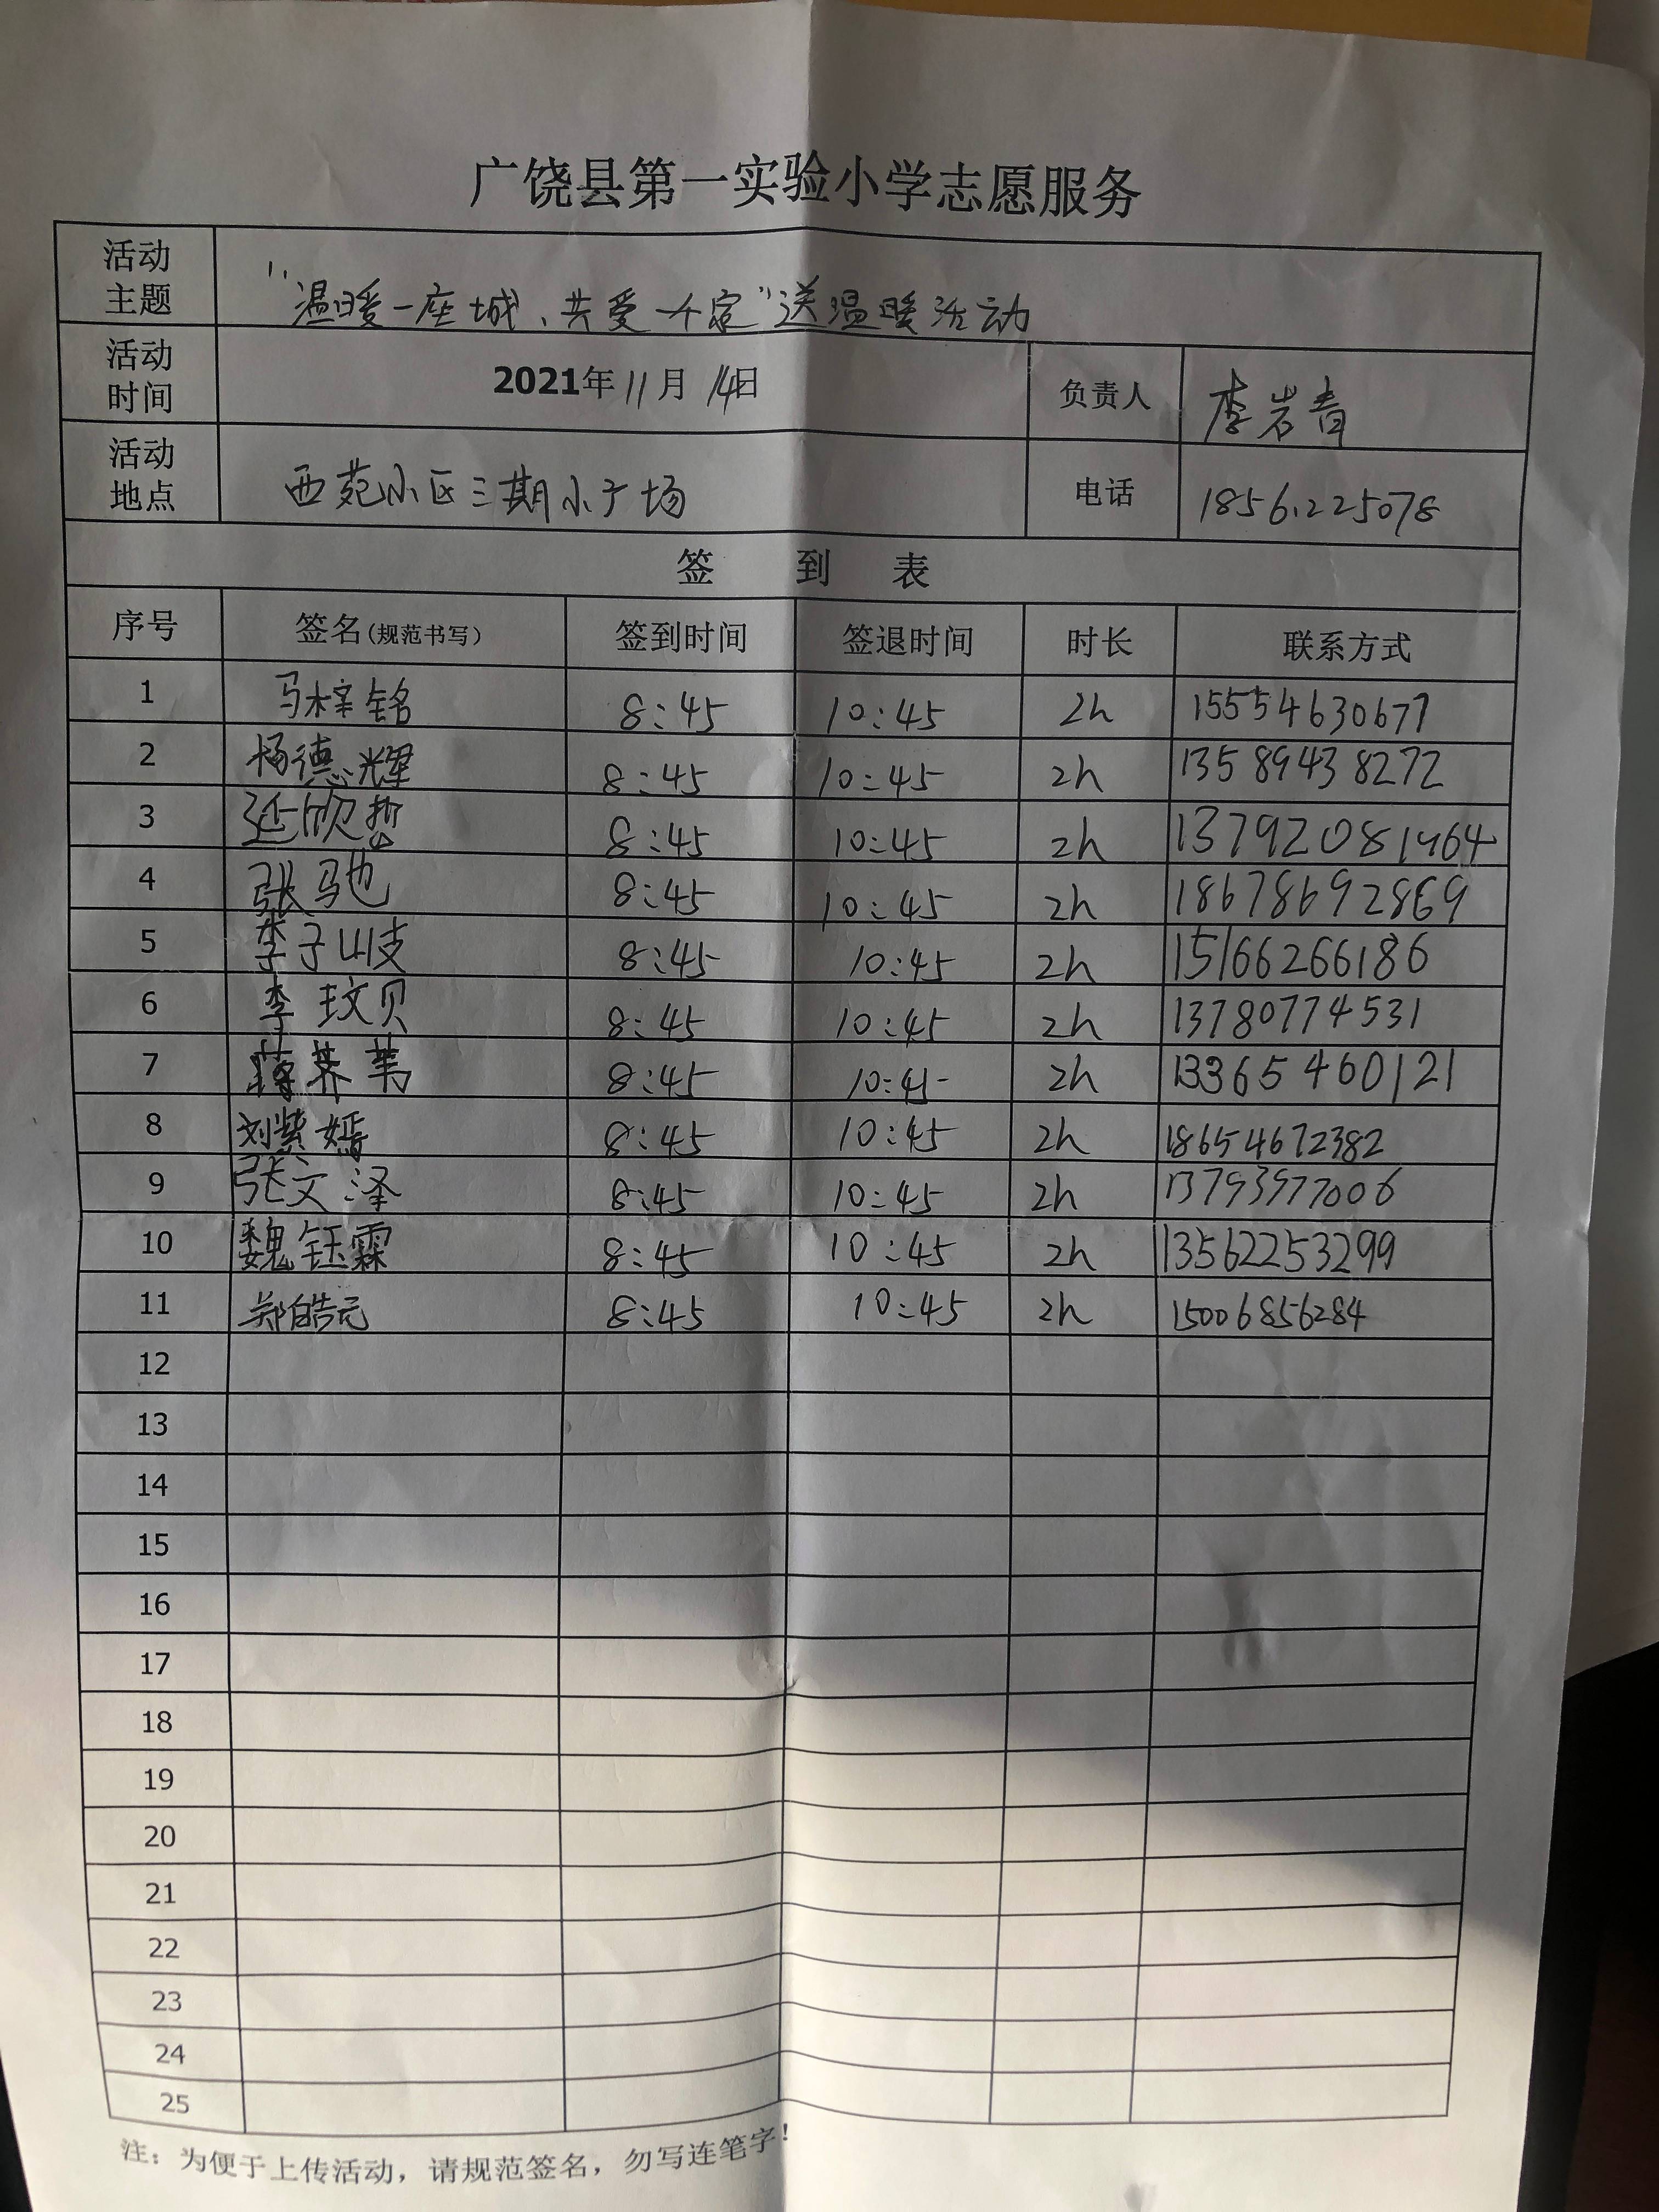 广饶县第一实验小学志愿服务
活动主题 “温暖一座城、共爱一个家”送温暖活动
活动时间 2021年11月14日 负责人 李岩青
活动地点 西苑小区三期小广场 电话 18561225078
签 到 表
序号 签名(规范书写) 签到时间 签退时间 时长 联系方式
1 马梓铭 8:45 10:45 2h 15554630677
2 杨德耀 8:45 10:45 2h 13589438272
3 延欣哲 8:45 10:45 2h 13792081464
4 张驰 8:45 10:45 2h 18678692869
5 李子岐 8:45 10:45 2h 15166266186
6 李玟贝 8:45 10:45 2h 13780774531
7 蒋荞苇 8:45 10:45 2h 13365460121
8 刘紫嫣 8:45 10:45 2h 18654672382
9 张文泽 8:45 10:45 2h 13793977006
10 魏钰霖 8:45 10:45 2h 13562253299
11 郑皓元 8:45 10:45 2h 15006856284
12
13
14
15
16
17
18
19
20
21
22
23
24
25
注：为便于上传活动，请规范签名，勿写连笔字！